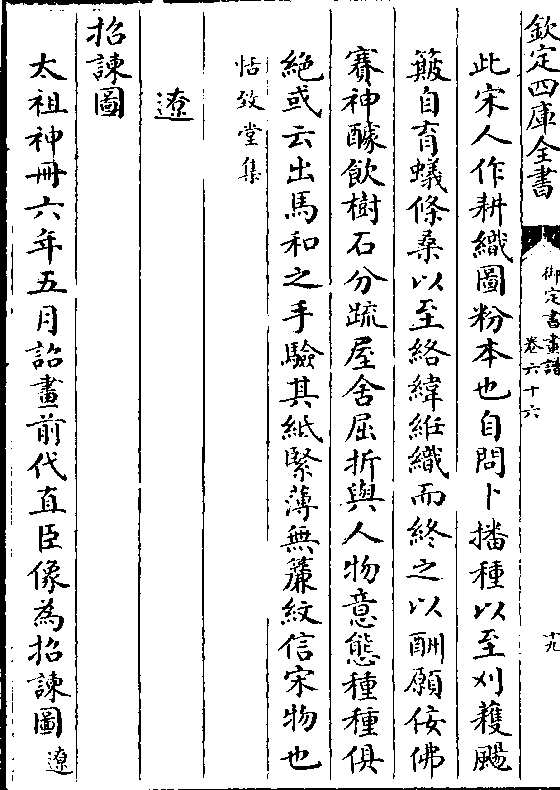 欽定四庫全書
御定書畫譜
卷六十六
十九
此宋人作耕織圖粉本也自問卜播種以至刈穫颺
簸自育蟻條桑以至絡緯絍織而終之以酬願佞佛
賽神醵飲樹石分疏屋舍屈折與人物意態種種俱
絕或云出馬和之手驗其紙緊薄無簾紋信宋物也
恬致堂集
遼
招諫圖
太祖神冊六年五月詔畫前代直臣像為招諫圖遼